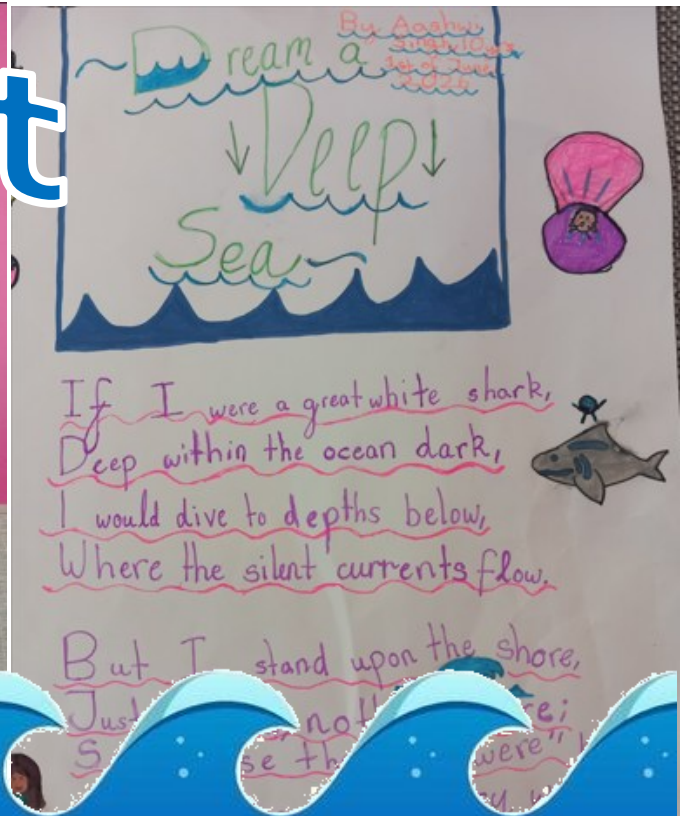 t
By Aashwi
Singh, 10 yrs
1st of June
2026
Dream a
Deep
Sea
If I were a great white shark,
Deep within the ocean dark,
I would dive to depths below,
Where the silent currents flow.
But I stand upon the shore,
Just
were"